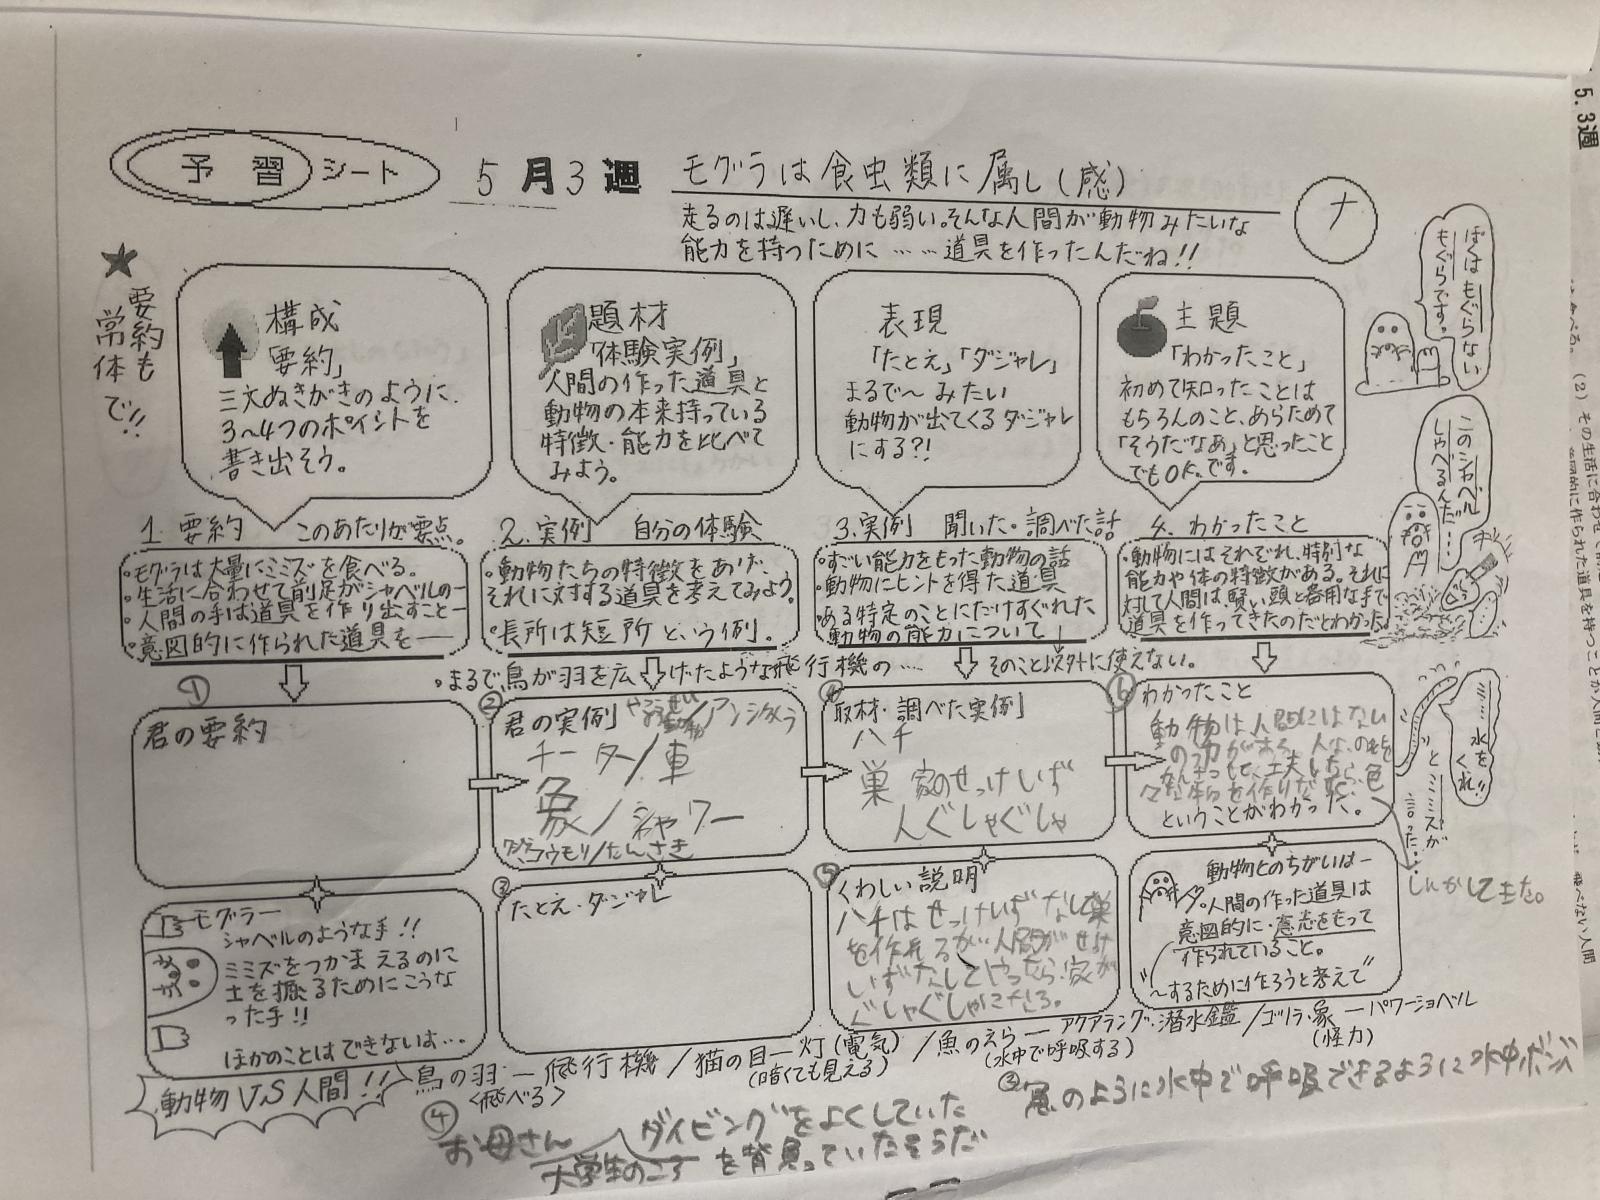 予習シート
5月3週
モグラは食虫類に属し(感)
走るのは遅いし、力も弱い。そんな人間が動物みたいな
能力を持つために……道具を作ったんだね!!
ナ
★要約も
常体で!!
構成
「要約」
三文ぬきがきのように、
3〜4つのポイントを
書き出そう。
題材
「体験実例」
人間の作った道具と
動物の本来持っている
特徴・能力を比べて
みよう。
表現
「たとえ」「ダジャレ」
まるで〜みたい
動物が出てくるダジャレ
にする?!
主題
「わかったこと」
初めて知ったことは
もちろんのこと、あらためて
「そうだなあ」と思ったこと
でもOK.です。
ぼくはもぐらない
もぐらです。
このシャベルで
しゃべるんだ…
1. 要約 このあたりが要点。
・モグラは大量にミミズを食べる。
・生活に合わせて前足がシャベルの―
・人間の手は道具を作り出すこと―
・意図的に作られた道具を――
2. 実例 自分の体験
・動物たちの特徴をあげ、
それに対する道具を考えてみよう。
・長所は短所という例。
3. 実例 聞いた・調べた話
・すごい能力をもった動物の話
・動物にヒントを得た道具
・ある特定のことにだけすぐれた
動物の能力について
そのこと以外に使えない。
4. わかったこと
・動物にはそれぞれ、特別な
能力や体の特徴がある。それに
対して人間は、賢い頭と器用な手で
道具を作ってきたのだとわかった。
・まるで、鳥が羽を広げたような飛行機の……
①
君の要約
②
君の実例
チーター/車
象/シャワー
コウモリ/たんさき
④
取材・調べた実例
ハチ
巣 家のせっけいず
人ぐしゃぐしゃ
⑥
わかったこと
動物は人間にはない
ということがわかった。
水を
くれ!!
とミミズが
言った…
しんかしてきた。
モグラ―
シャベルのような手!!
ミミズをつかまえるのに
土を掘るためにこうな
った手!!
ほかのことはできないは…
③
たとえ・ダジャレ
⑤
くわしい説明
ハチはせっけいずなしで巣
を作れるが、人間がせっけ
いずなしでやったら、家が
ぐしゃぐしゃになる。
動物とのちがいは―
人間の作った道具は
意図的に・意志をもって
作られていること。
"〜するために作ろうと考えて"
動物VS人間!!
鳥の羽―飛行機/猫の目―灯(電気)/魚のえら―アクアラング、潜水鑑/ゴリラ・象―パワーショベル
〈飛べる〉
(暗くても見える)
(水中で呼吸する)
(怪力)
③
魚のように水中で呼吸できるように水中ボンベ
④
お母さん
大学生のころ
ダイビングをよくしていた
を背負っていたそうだ
5.3週